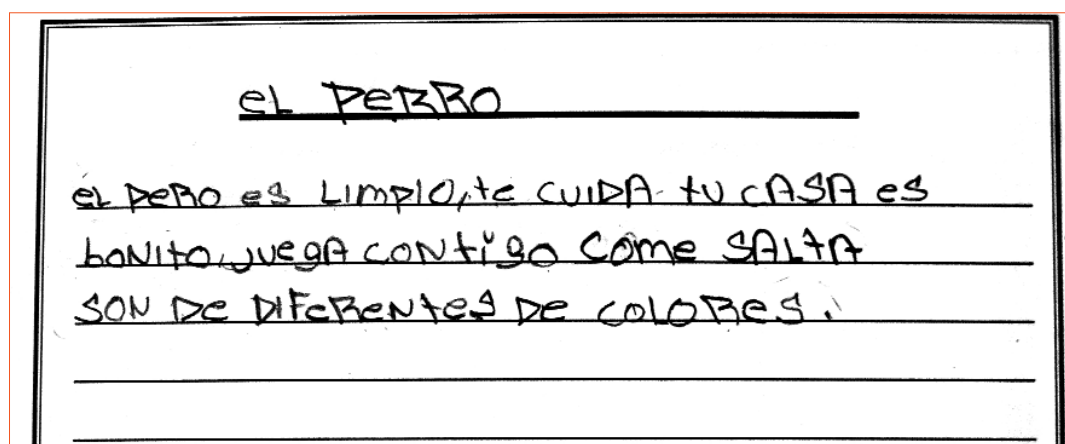 eL PeRRO
eL PeRO es LImPIO, te CUIDA tU CASA es
bONItO, JUegA CONtigO Come SALtA
SON De DIFeReNteS De COLORes.